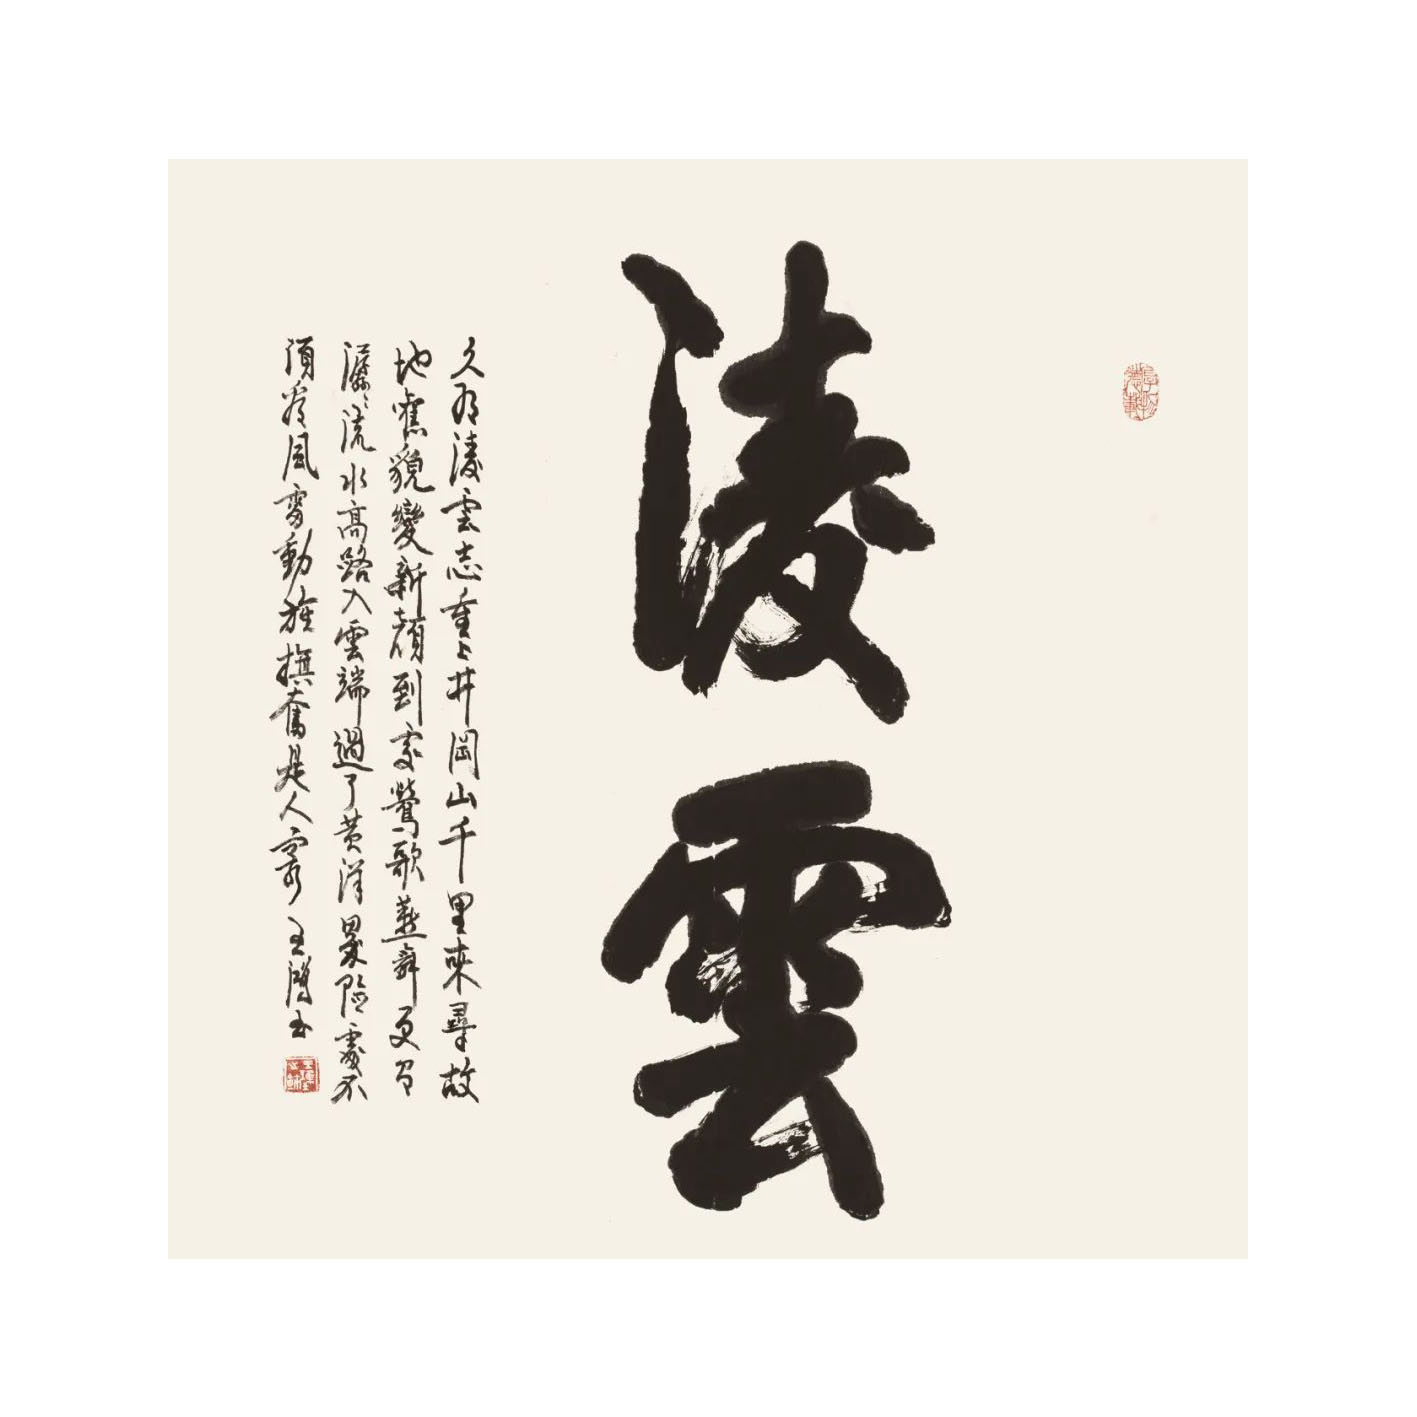 淩雲
久有淩雲志重上井岡山千里來尋故
地舊貌變新顔到處鶯歌燕舞更有
潺〻流水高路入雲端過了黄洋界險處不
須看風雷動旌旗奮是人寰